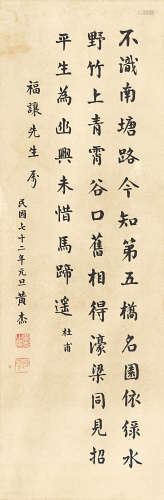 不識南塘路今知第五橋名園依綠水
野竹上青霄谷口舊相得濠梁同見招
平生為幽興未惜馬蹄遙 杜甫
福讓先生屬
民國七十二年元旦黃杰